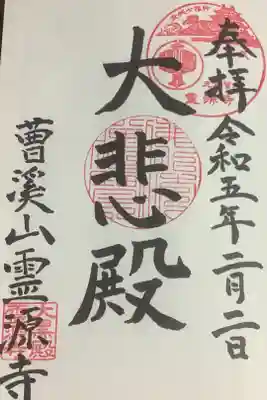 奉拝 令和五年二月二日
大悲殿
曹溪山靈源寺